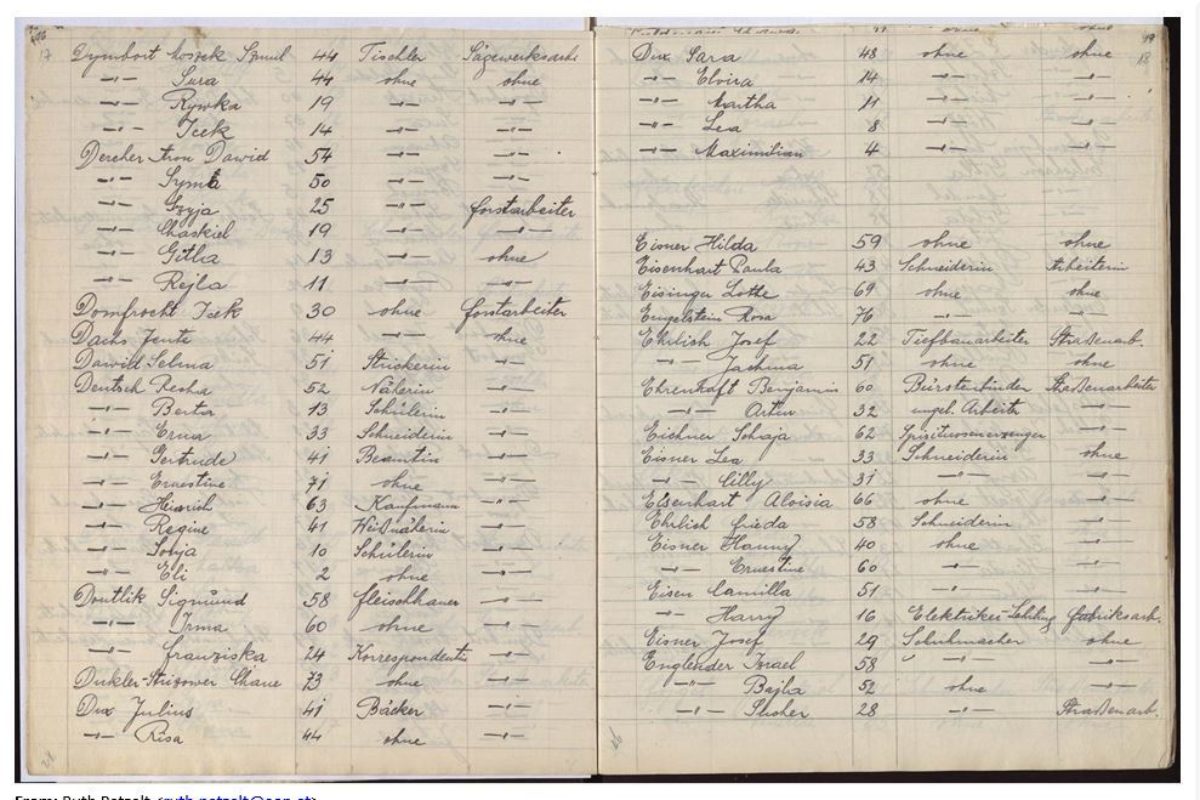 17
Dymbort Moszek Szmul 44 Tischler Sägewerksarb
—"— Sura 44 ohne ohne
—"— Rywka 19 —"— —"—
—"— Icek 14 —"— —"—
Dercher Aron Dawid 54 —"— —"—
—"— Symta 50 —"— —"—
—"— Szyja 25 —"— Forstarbeiter
—"— Chaskiel 19 —"— —"—
—"— Gitla 13 —"— ohne
—"— Rejla 11 —"— —"—
Domfrocht Icek 30 ohne Forstarbeiter
Dachs Jente 44 —"— ohne
Dawid Selma 51 Strickerin —"—
Deutsch Resha 52 Näherin —"—
—"— Berta 13 Schülerin —"—
—"— Erna 33 Schneiderin —"—
—"— Gertrude 41 Beamtin —"—
—"— Ernestine 71 ohne —"—
—"— Heinrich 63 Kaufmann —"—
—"— Regine 41 Weißnäherin —"—
—"— Sonja 10 Schülerin —"—
—"— Eli 2 ohne —"—
Doutlik Sigmund 58 Fleischhauer —"—
—"— Irma 60 ohne —"—
—"— Franziska 24 Korrespondentin —"—
Dukler-Strizower Chane 73 ohne —"—
Dux Julius 41 Bäcker —"—
—"— Risa 44 ohne —"—
18
Dux Sara 48 ohne ohne
—"— Elvira 14 —"— —"—
—"— Martha 11 —"— —"—
—"— Lea 8 —"— —"—
—"— Maximilian 4 —"— —"—
Eisner Hilda 59 ohne ohne
Eisenhart Paula 43 Schneiderin Arbeiterin
Eisinger Lotte 69 ohne ohne
Engelstein Rosa 76 —"— —"—
Ehrlich Josef 22 Tiefbauarbeiter Straßenarb.
—"— Jachma 51 ohne ohne
Ehrenhaft Benjamin 60 Bürstenbinder Straßenarbeiter
—"— Artur 32 ungel. Arbeiter —"—
Eichner Schaja 62 Spirituosenerzeuger —"—
Eisner Lea 33 Schneiderin ohne
—"— Cilly 31 —"— —"—
Eisenhart Aloisia 66 ohne —"—
Ehrlich Frieda 58 Schneiderin —"—
Eisner Hanny 40 ohne —"—
—"— Ernestine 60 —"— —"—
Eisen Camilla 51 —"— —"—
—"— Harry 16 Elektriker-Lehrling Fabriksarb.
Eisner Josef 29 Schuhmacher ohne
Englender Izrael 58 —"— —"—
—"— Bajla 52 ohne —"—
—"— Slioher 28 —"— Straßenarb.
From: Ruth Patzelt